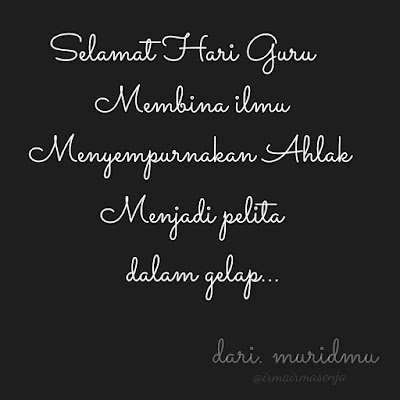 Selamat Hari Guru
Membina ilmu
Menyempurnakan Ahlak
Menjadi pelita
dalam gelap...
dari. muridmu
@irmairmasenja